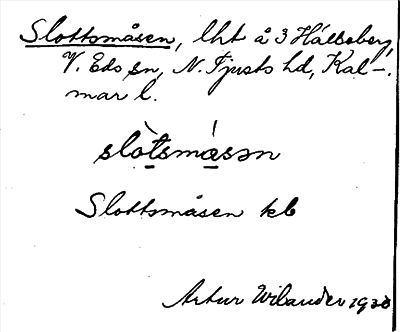 Slottsmåsen, lht å 3 Hälleberg,
V. Eds sn, N. Tjusts hd, Kal-
mar l.
slòtsmásən
Slottsmåsen kb
Artur Wilander 1930